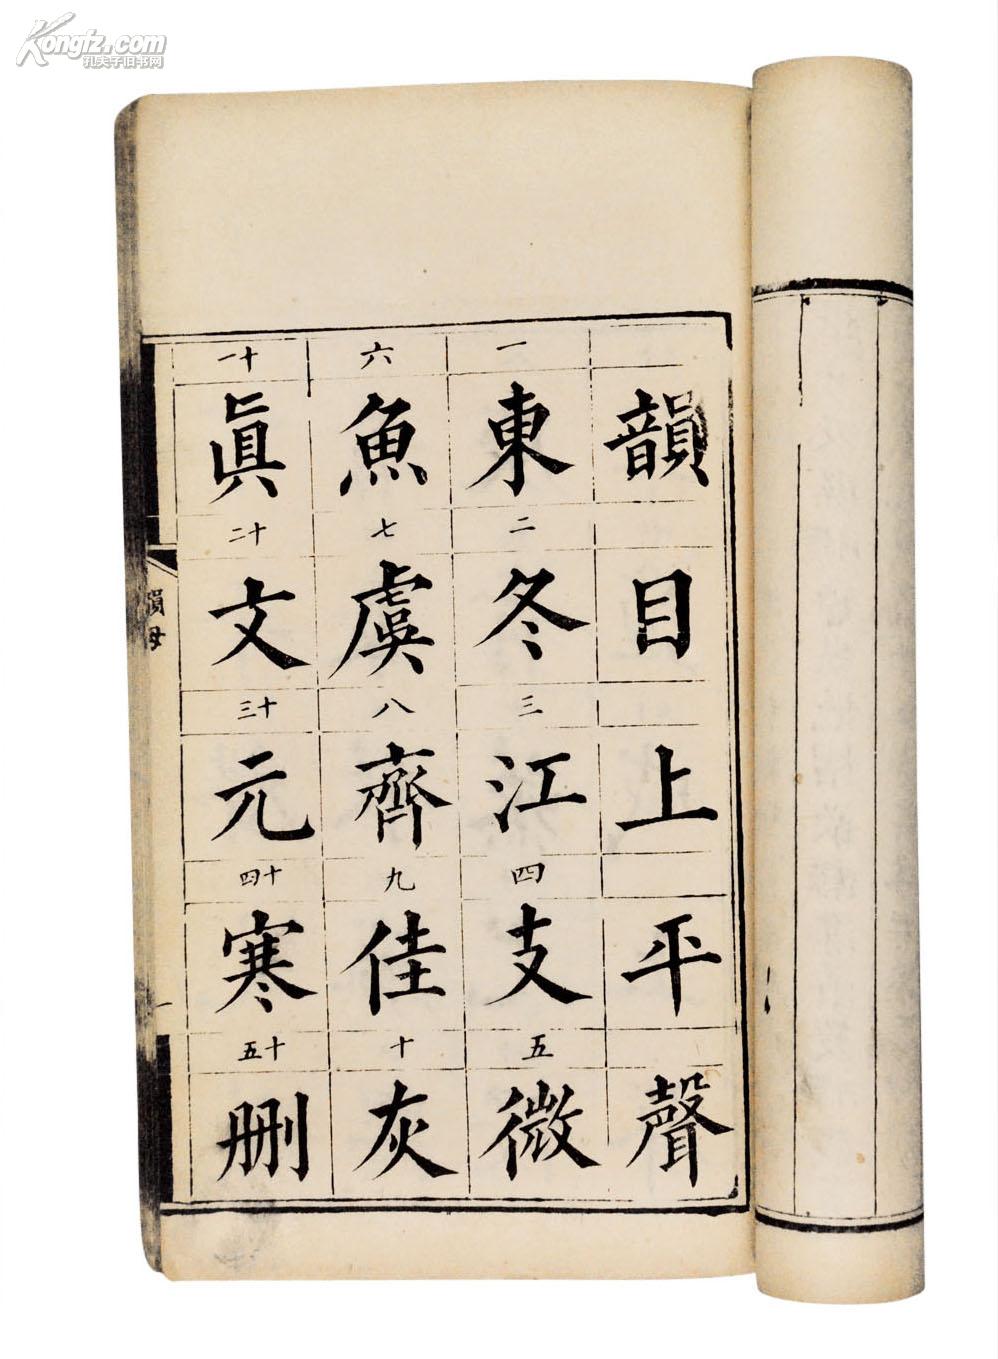 Kongfz.com
孔夫子旧书网
韻目上平聲
一 東 二 冬 三 江 四 支 五 微
六 魚 七 虞 八 齊 九 佳 十 灰
十一 眞 十二 文 十三 元 十四 寒 十五 刪
韻母
一